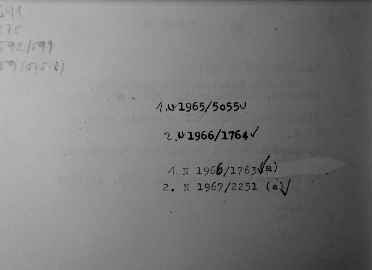 591
275
592/599
59(575.8)
1. U 1965/5055U
2. U 1966/1764✓
1. N 1966/1763✓(a)
2. N 1967/2251 (a)✓